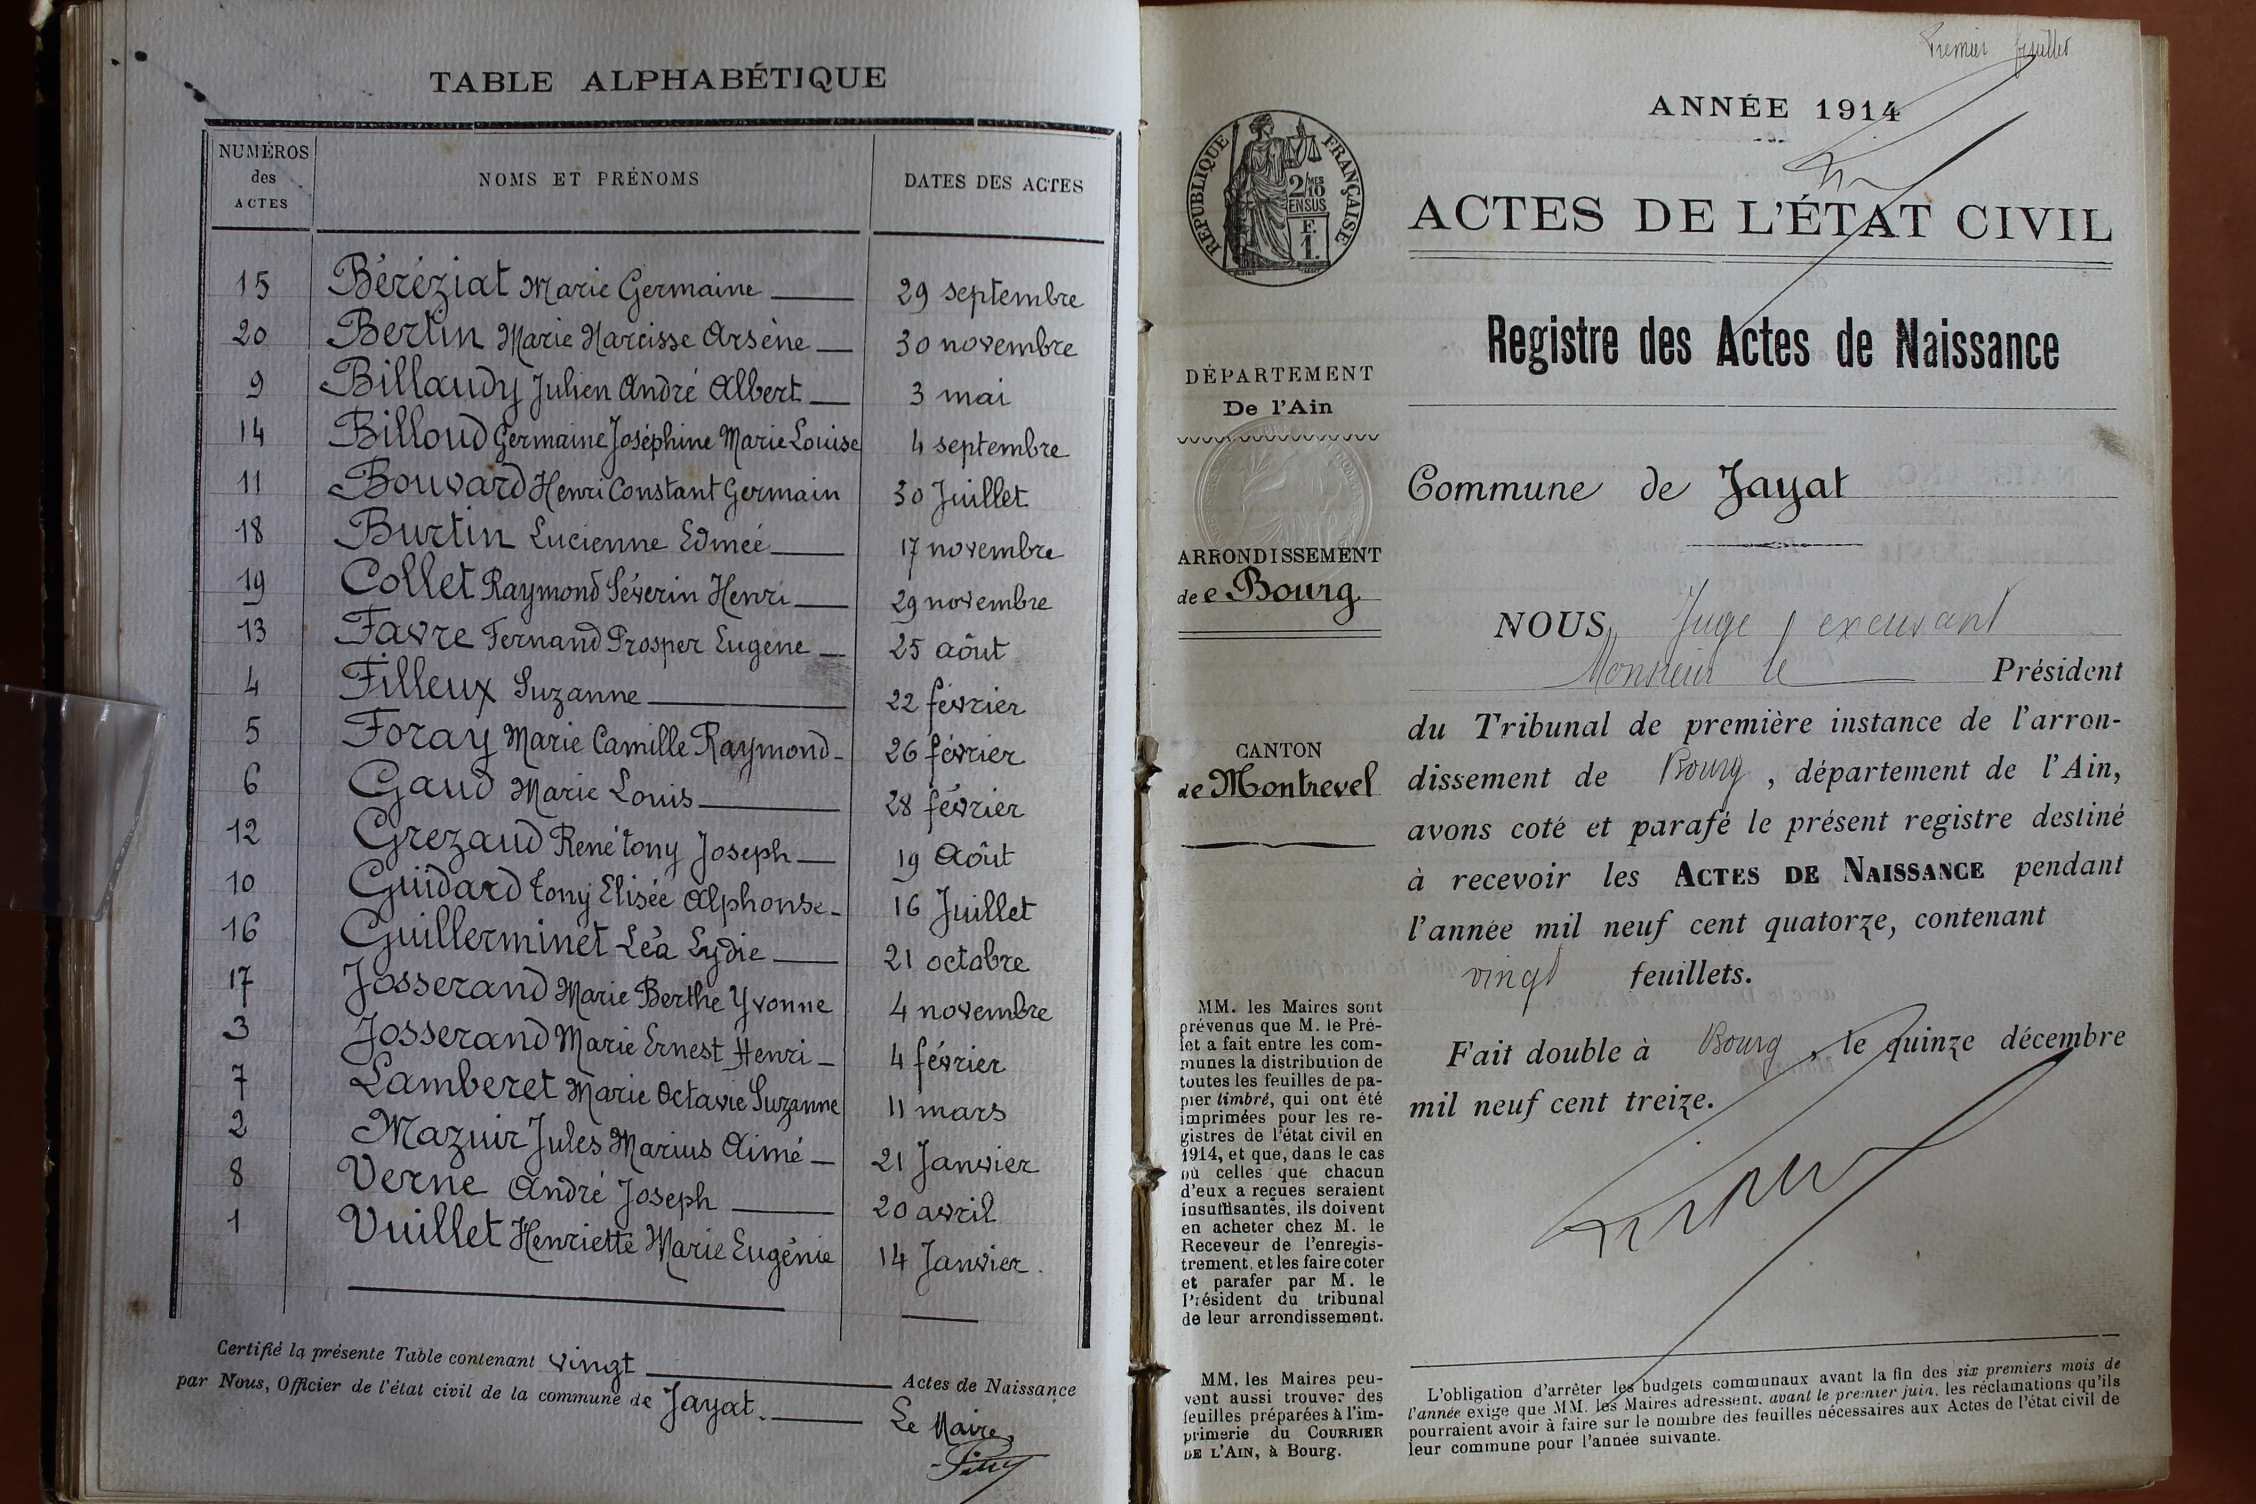 TABLE ALPHABÉTIQUE
NUMÉROS des ACTES NOMS ET PRÉNOMS DATES DES ACTES
15 Béréziat Marie Germaine 29 septembre
20 Bertin Marie Narcisse Arsène 30 novembre
9 Billaudy Julien André Albert 3 mai
14 Billoud Germaine Joséphine Marie Louise 4 septembre
11 Bouvard Henri Constant Germain 30 Juillet
18 Burtin Lucienne Edmée 17 novembre
19 Collet Raymond Séverin Henri 29 novembre
13 Favre Fernand Prosper Eugène 25 aôut
4 Filleux Suzanne 22 février
5 Foray Marie Camille Raymond 26 février
6 Gaud Marie Louis 28 février
12 Grezaud René Tony Joseph 19 Aôut
10 Guidard Tony Elisée Alphonse 16 Juillet
16 Guillerminet Léa Lydie 21 octobre
17 Josserand Marie Berthe Yvonne 4 novembre
3 Josserand Marie Ernest Henri 4 février
7 Lamberet Marie Octavie Suzanne 11 mars
2 Mazuir Jules Marius Aimé 21 Janvier
8 Verne André Joseph 20 avril
1 Vuillet Henriette Marie Eugénie 14 Janvier.
Certifié la présente Table contenant vingt Actes de Naissance
par Nous, Officier de l'état civil de la commune de Jayat.
Le Maire,
Premier feuillet
ANNÉE 1914
RÉPUBLIQUE FRANÇAISE
2/MES 10
EN SUS
F.
1.
ACTES DE L'ÉTAT CIVIL
Registre des Actes de Naissance
DÉPARTEMENT
De l'Ain
Commune de Jayat
ARRONDISSEMENT
de Bourg
CANTON
de Montrevel
NOUS, Juge excusant
Monsieur le Président
du Tribunal de première instance de l'arron-
dissement de Bourg, département de l'Ain,
avons coté et parafé le présent registre destiné
à recevoir les ACTES DE NAISSANCE pendant
l'année mil neuf cent quatorze, contenant
vingt feuillets.
Fait double à Bourg, le quinze décembre
mil neuf cent treize.
MM. les Maires sont
prévenus que M. le Pré-
fet a fait entre les com-
munes la distribution de
toutes les feuilles de pa-
pier timbré, qui ont été
imprimées pour les re-
gistres de l'état civil en
1914, et que, dans le cas
où celles que chacun
d'eux a reçues seraient
insuffisantes, ils doivent
en acheter chez M. le
Receveur de l'enregis-
trement, et les faire coter
et parafer par M. le
Président du tribunal
de leur arrondissement.
MM. les Maires peu-
vent aussi trouver des
feuilles préparées à l'im-
primerie du COURRIER
DE L'AIN, à Bourg.
L'obligation d'arrêter les budgets communaux avant la fin des six premiers mois de
l'année exige que MM. les Maires adressent, avant le premier juin, les réclamations qu'ils
pourraient avoir à faire sur le nombre des feuilles nécessaires aux Actes de l'état civil de
leur commune pour l'année suivante.